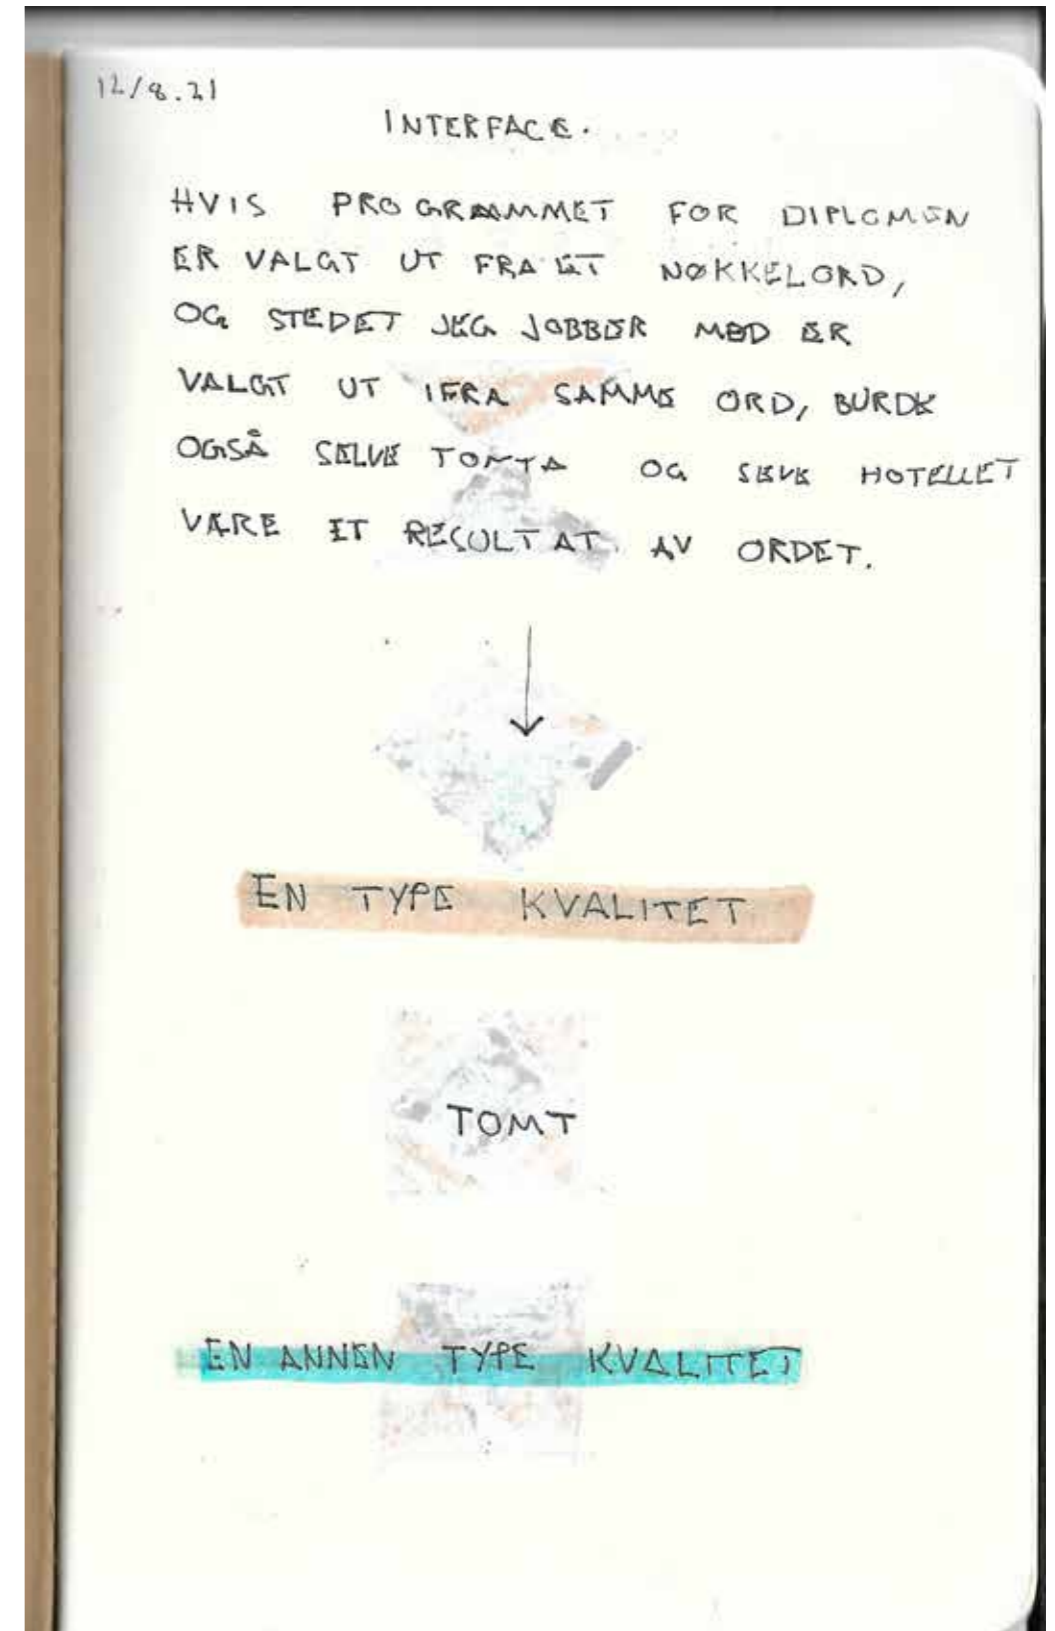 12/8.21
INTERFACE.
HVIS PROGRAMMET FOR DIPLOMEN
ER VALGT UT FRA ET NØKKELORD,
OG STEDET JEG JOBBER MED ER
VALGT UT IFRA SAMME ORD, BURDE
OGSÅ SELVE TOMTA OG SELVE HOTELLET
VÆRE ET RESULTAT AV ORDET.
EN TYPE KVALITET
TOMT
EN ANNEN TYPE KVALITET